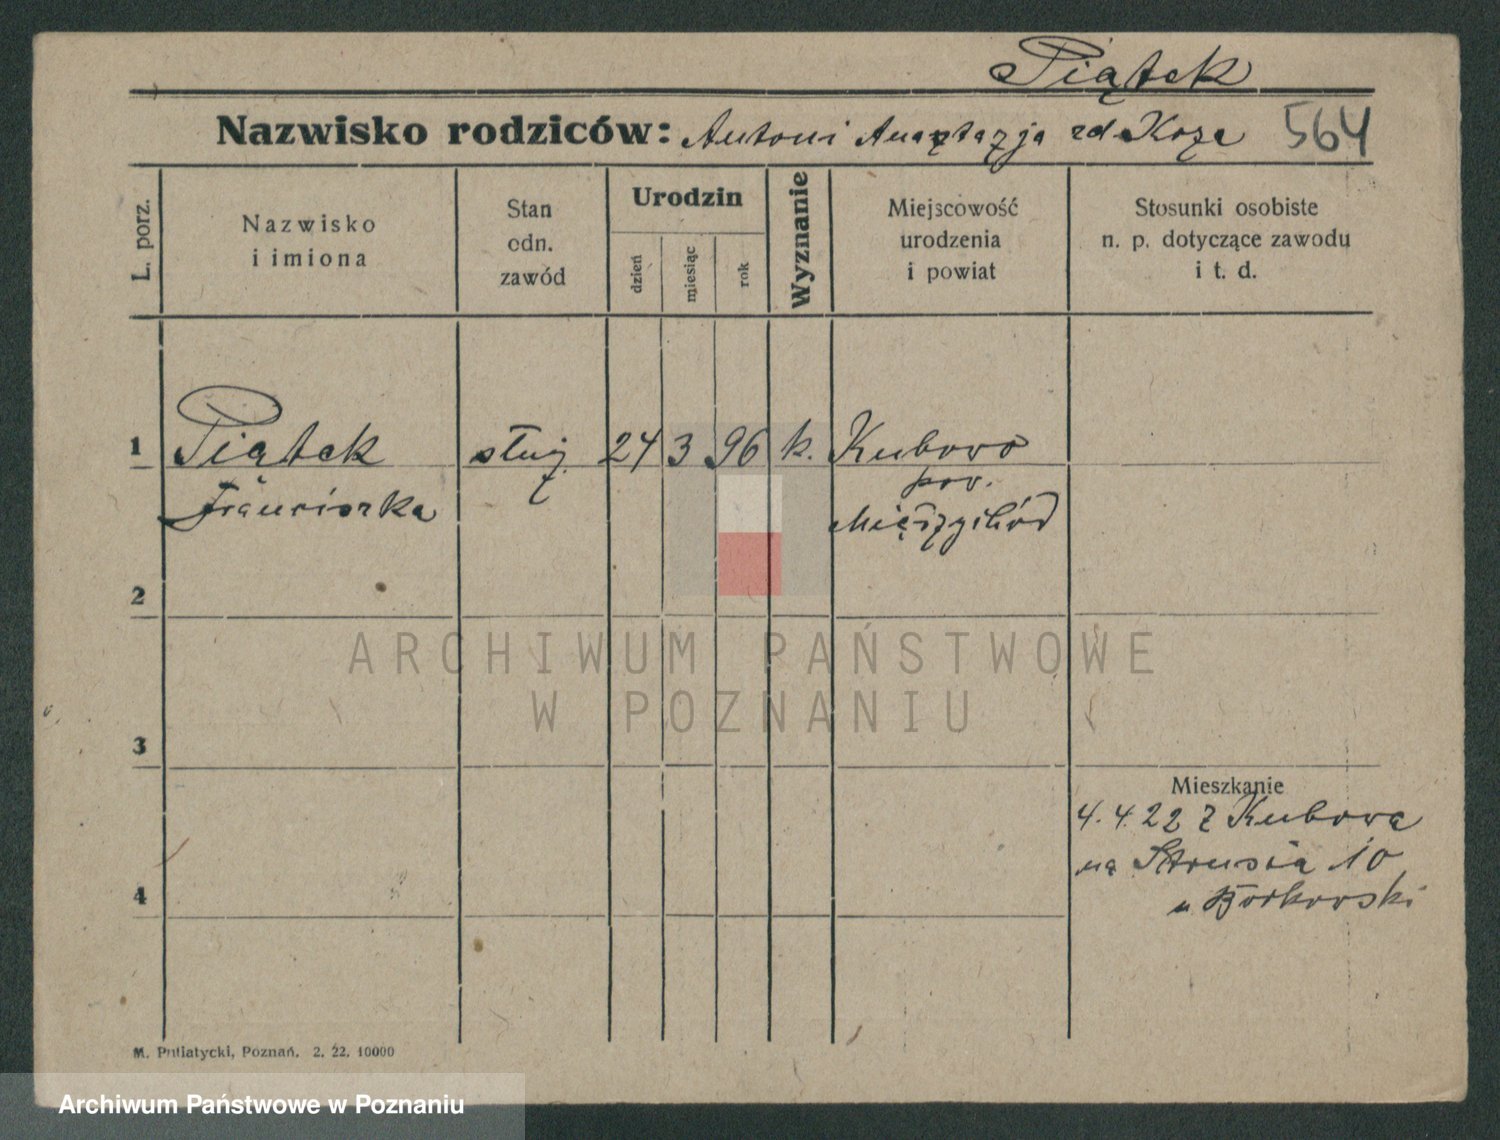 Piątek
Nazwisko rodziców: Antoni Anastazja zd Koza 564
L. porz.
Nazwisko
i imiona
Stan
odn.
zawód
Urodzin
dzień
miesiąc
rok
Wyznanie
Miejscowość
urodzenia
i powiat
Stosunki osobiste
n. p. dotyczące zawodu
i t. d.
1 Piątek służ. 24 3 96 k. Kubowo
Franciszka
pow.
Międzychód
2
3
Mieszkanie
4. 4. 22 z Kubowa
na Strusia 10
u Borkowski
4
M. Putiatycki, Poznań. 2. 22. 10000
ARCHIWUM PAŃSTWOWE
W POZNANIU
Archiwum Państwowe w Poznaniu